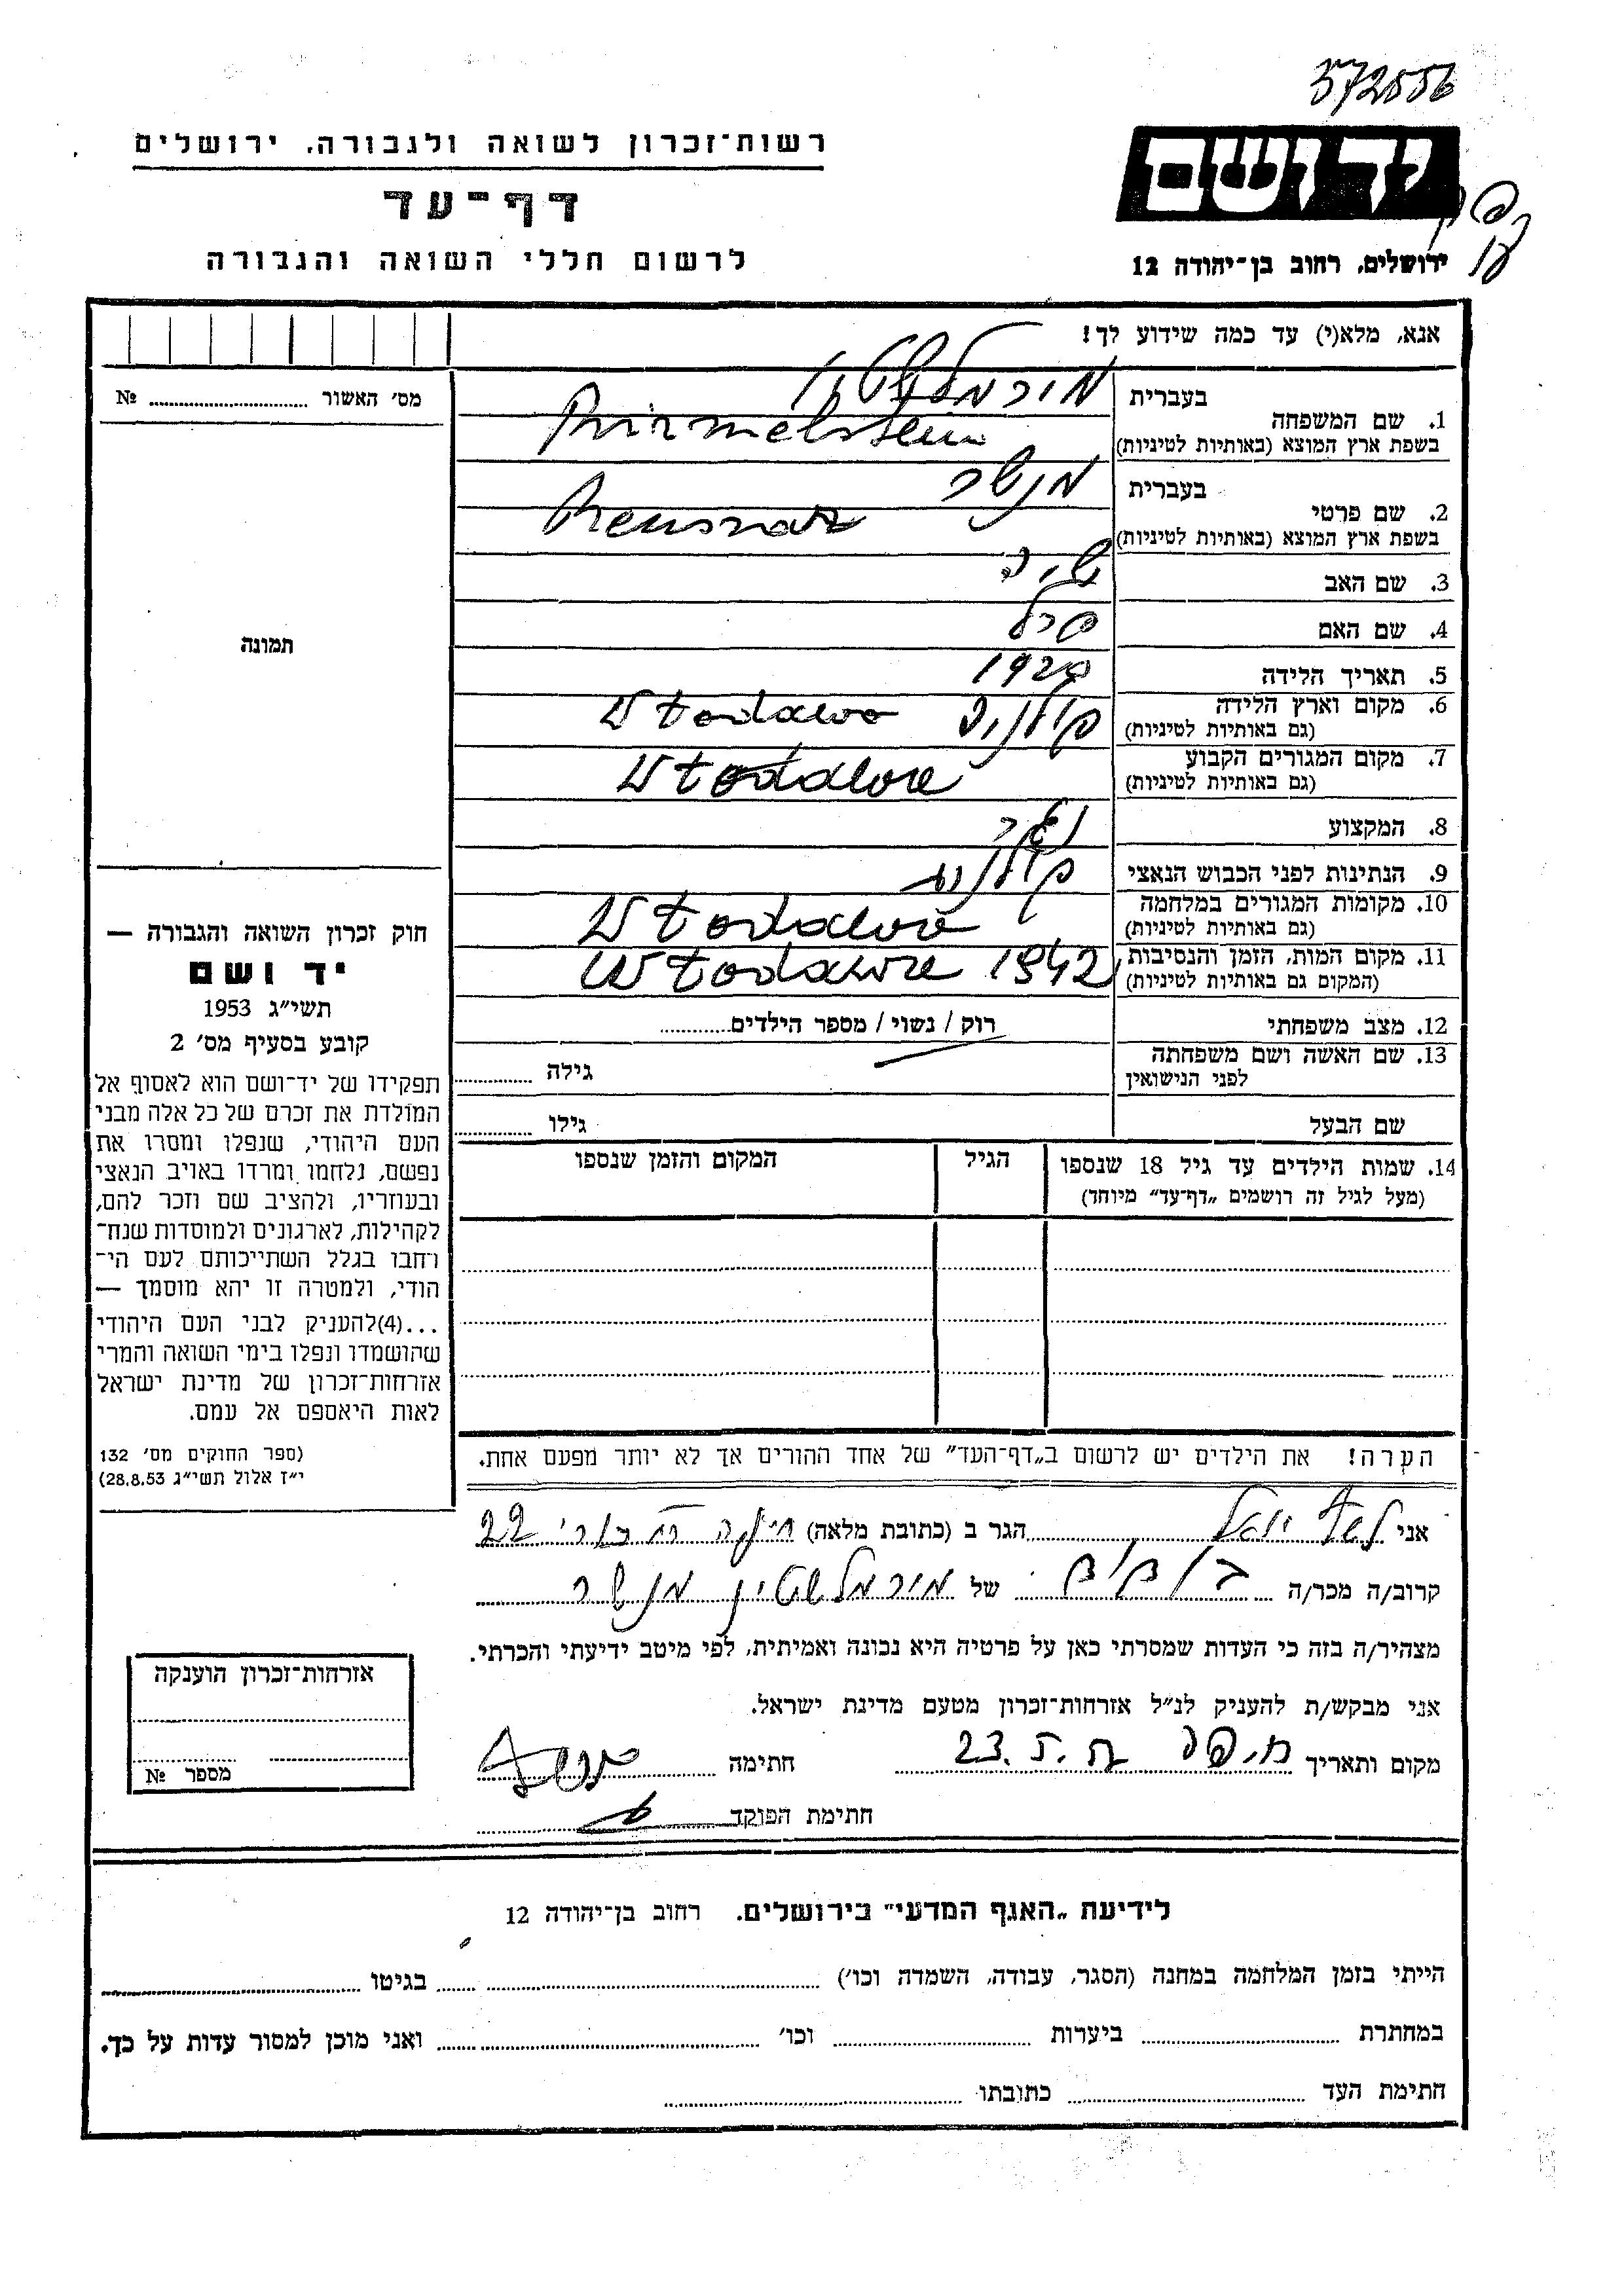 372556
רשות־זכרון לשואה ולגבורה, ירושלים
יד ושם
דף־עד
ירושלים, רחוב בן־יהודה 12
לרשום חללי השואה והגבורה
אנא, מלא(י) עד כמה שידוע לך!
מס׳ האשור №
1. שם המשפחה בעברית
בשפת ארץ המוצא (באותיות לטיניות)
2. שם פרטי בעברית מנשה
בשפת ארץ המוצא (באותיות לטיניות)
3. שם האב
4. שם האם
5. תאריך הלידה 1920
6. מקום וארץ הלידה פולניה Wtodawa
(גם באותיות לטיניות)
7. מקום המגורים הקבוע Wtodawa
(גם באותיות לטיניות)
8. המקצוע
9. הנתינות לפני הכבוש הנאצי פולנית
10. מקומות המגורים במלחמה Wtodawa
(גם באותיות לטיניות)
11. מקום המות, הזמן והנסיבות Wtodawa 1942
(המקום גם באותיות לטיניות)
12. מצב משפחתי רוק / נשוי / מספר הילדים
13. שם האשה ושם משפחתה
לפני הנישואין גילה
שם הבעל גילו
14. שמות הילדים עד גיל 18 שנספו הגיל המקום והזמן שנספו
(מעל לגיל זה רושמים „דף־עד״ מיוחד)
הערה! את הילדים יש לרשום ב„דף־העד״ של אחד ההורים אך לא יותר מפעם אחת.
תמונה
חוק זכרון השואה והגבורה —
יד ושם
תשי״ג 1953
קובע בסעיף מס׳ 2
תפקידו של יד־ושם הוא לאסוף אל
המולדת את זכרם של כל אלה מבני
העם היהודי, שנפלו ומסרו את
נפשם, נלחמו ומרדו באויב הנאצי
ובעוזריו, ולהציב שם וזכר להם,
לקהילות, לארגונים ולמוסדות שנח־
רחבו בגלל השתייכותם לעם הי־
הודי, ולמטרה זו יהא מוסמך —
...(4)להעניק לבני העם היהודי
שהושמדו ונפלו בימי השואה והמרי
אזרחות־זכרון של מדינת ישראל
לאות היאספם אל עמם.
(ספר החוקים מס׳ 132
י״ז אלול תשי״ג 28.8.53)
אני הגר ב (כתובת מלאה) חיפה 22
קרוב/ה מכר/ה בן דוד של מורמלשטין מנשה
מצהיר/ה בזה כי העדות שמסרתי כאן על פרטיה היא נכונה ואמיתית, לפי מיטב ידיעתי והכרתי.
אני מבקש/ת להעניק לנ״ל אזרחות־זכרון מטעם מדינת ישראל.
מקום ותאריך חיפה 23.5. חתימה
חתימת הפוקד
אזרחות־זכרון הוענקה
מספר №
לידיעת „האגף המדעי״ בירושלים, רחוב בן־יהודה 12
הייתי בזמן המלחמה במחנה (הסגר, עבודה, השמדה וכו׳) בגיטו
במחתרת ביערות וכו׳ ואני מוכן למסור עדות על כך.
חתימת העד כתובתו